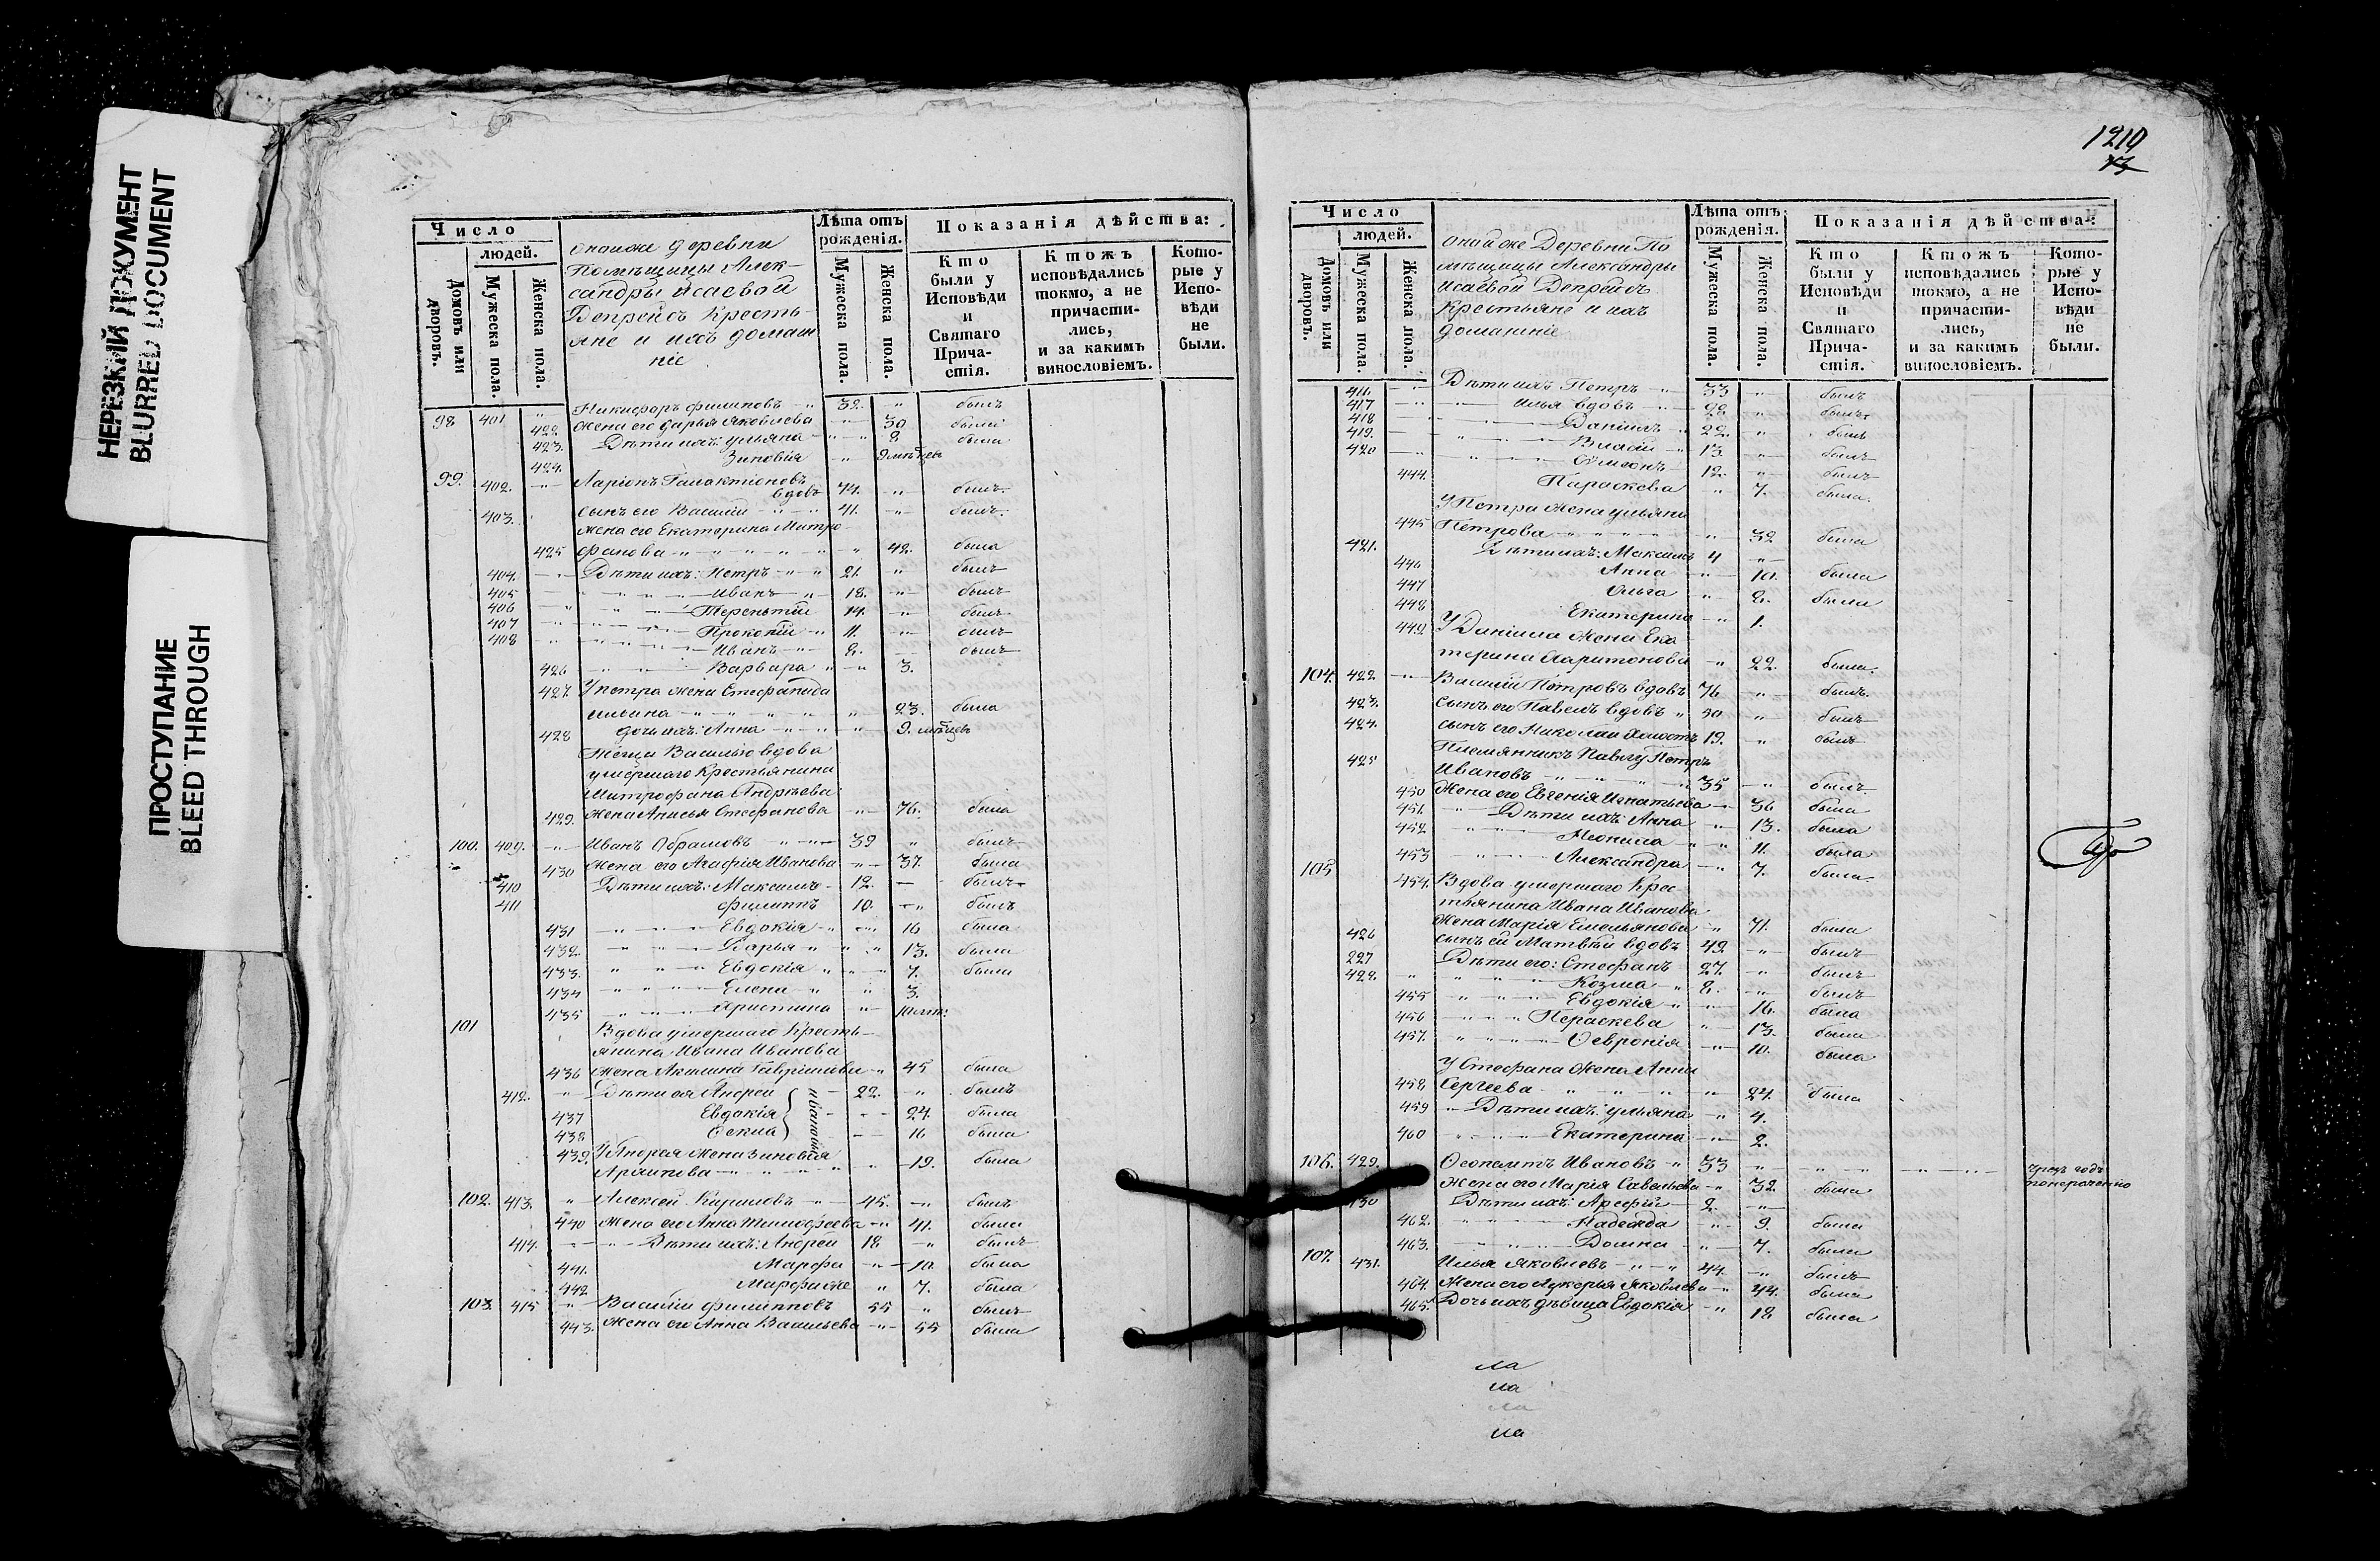 НЕРЕЗКИЙ ДОКУМЕНТ
BLURRED DOCUMENT
ПРОСТУПАНИЕ
BLEED THROUGH
Число
людей.
Домовъ или дворовъ.
Мужеска пола.
Женска пола.
оноиже деревни
Помѣщицы Алек-
сандры Исаевой
Депрейсъ Кресть-
яне и ихъ домаш
ніе
Лѣта отъ рожденія.
Мужеска пола.
Женска пола.
Показанія дѣйства:
Кто были у Исповѣди и Святаго Прича- стія.
Ктожъ исповѣдались токмо, а не причасти- лись, и за какимъ винословіемъ.
Кото- рые у Испо- вѣди не были.
98 401 " Никифоръ Филиповъ 32. " былъ
422. Жена его Дарья Яковлева 30 была
423. Дѣти ихъ: Ульяна " 8 была
424. Зиновія " 9 мѣсцевъ
99. 402. Ларіонъ Галактіоновъ
вдовъ 74. " былъ
403. Сынъ его Василій 41. " былъ
Жена его Екатерина Митро
425 фанова " 42. была
404. Дѣти ихъ: Петръ 21. " былъ
405 Иванъ 18. " былъ
406 Терентій 14. " былъ
407 Прокопій 11. " былъ
408 Иванъ 8. былъ
426 Варвара 3.
427. У Петра жена Стефанида
Ильина " 23. была
428 дочь ихъ: Анна " 9. мѣсцевъ
Василью вдова
умершаго Крестьянина
Митрофана Андрѣева
429. Жена Анисья Стефанова 76. была
100. 409. Иванъ Обрамовъ 39 " былъ
430 Жена его Агафія Иванова 37. была
410 Дѣти ихъ: Максимъ 12. былъ
411 Филиппъ 10. былъ
431 Евдокія 16 была
432. Дарья 13. была
433. Евдокія 7. была
434 Елена 3.
435 Христина
101 Вдова умершаго Кресть-
янина Ивана Иванова
436 Жена Акилина Гаврилова 45 была
412. Дѣти ея Андрей 22. " былъ
437 Евдокія 24. была
438 Ѳекла 16 была
Ивановы
439. У Андрея жена Зиновія
Архипова 19. была
102. 413. " Алексей Кириловъ 45. былъ
440 Жена его Анна Тимофеева 41. была
414. Дѣти ихъ: Андрей 18 " былъ
441. Марфа 10. была
442. Марфа же " 7. была
103. 415 " Василій Филипповъ 55 " былъ
443. Жена его Анна Васильева 55 была
1219
Число
людей.
Домовъ или дворовъ.
Мужеска пола.
Женска пола.
оной же Деревни По
мѣщицы Александры
Исаевой Депрейсъ
Крестьяне и ихъ
домашніе
Лѣта отъ рожденія.
Мужеска пола.
Женска пола.
Показанія дѣйства:
Кто были у Исповѣди и Святаго Прича- стія.
Ктожъ исповѣдались токмо, а не причасти- лись, и за какимъ винословіемъ.
Кото- рые у Испо- вѣди не были.
416. Дѣти ихъ Петръ 33 " былъ
417 Илья вдовъ " былъ
418 Даніилъ 22. " былъ
419. Власій 13. " былъ
420 Симеонъ 12. " былъ
444. Параскева " 7. была.
У Петра жена Ульяна
445 Петрова " 32 была
421. Дѣти ихъ: Максимъ 4 "
446 Анна 10. была
447 Ольга " 8. была
448 Екатерина " 1.
449. У Даніила жена Ека
терина Харитонова " 22. была.
104. 422 Василій Петровъ вдовъ 76 " былъ
423. Сынъ его Павелъ вдовъ " 50 " былъ
424. сынъ его Николай холостъ 19. " былъ
425 Племянникъ Павлу Петръ
Ивановъ 35 " былъ.
450 Жена его Евгенія Игнатьева 36 была
451. Дѣти ихъ: Анна 13. была
452. Неонила " 11. была
453 Александра " 7. была.
105 454. Вдова умершаго Крес-
тьянина Ивана Иванова
Жена Марія Емельянова 71. была
426 Сынъ ей Матвѣй вдовъ 49. " былъ
227 Дѣти его: Стефанъ 27. " былъ
428. Козма 8. былъ
455 Евдокія " 16. была
456 Пераскева " 13. была
457. Ѳевронія " 10. была
У Стефана жена Анна
458 Сергеева " 24. была
459 Дѣти ихъ: Ульяна " 4.
460 Екатерина 2.
106. 429. Ѳеопемптъ Ивановъ 33 " чрезъ годъ
Жена его Марія Савельева 32. была
430 Дѣти ихъ: Арефій 2.
462. Надежда 9. была
463. Домна 7. была
107. 431. Илья Яковлевъ 44. былъ
464. Жена его Лукерья Яковлева 44. была
465. Дочь ихъ дѣвица Евдокія 18 была
ла
ла
ла
ла